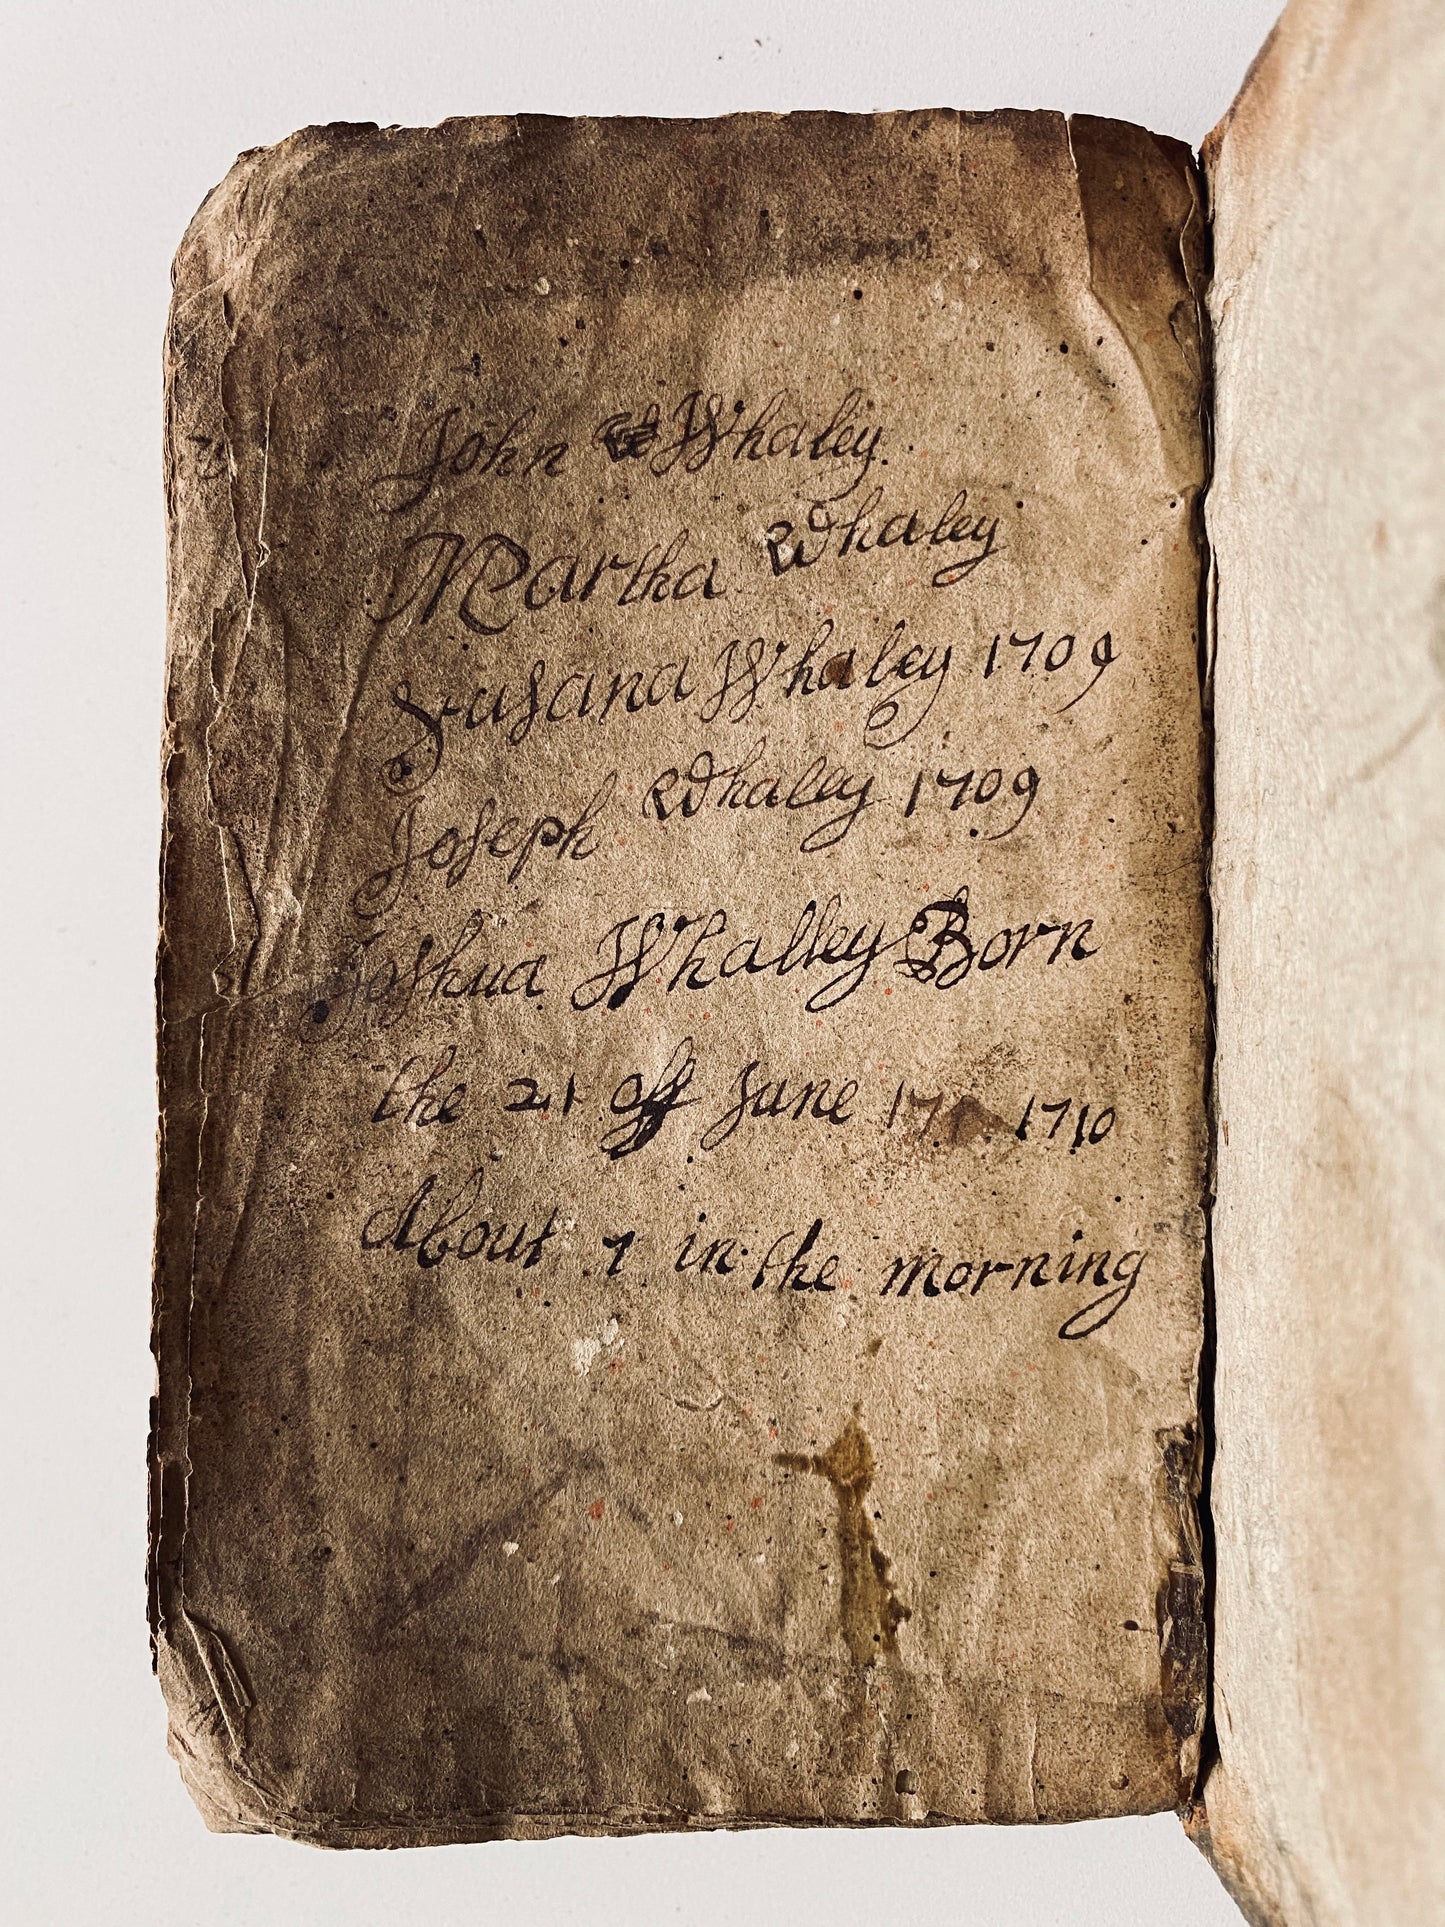 John Whaley
Martha Whaley
Susana Whaley 1709
Joseph Whaley 1709
Joshua Whalley Born
the 21 off June 17 1710
About 1 in the morning